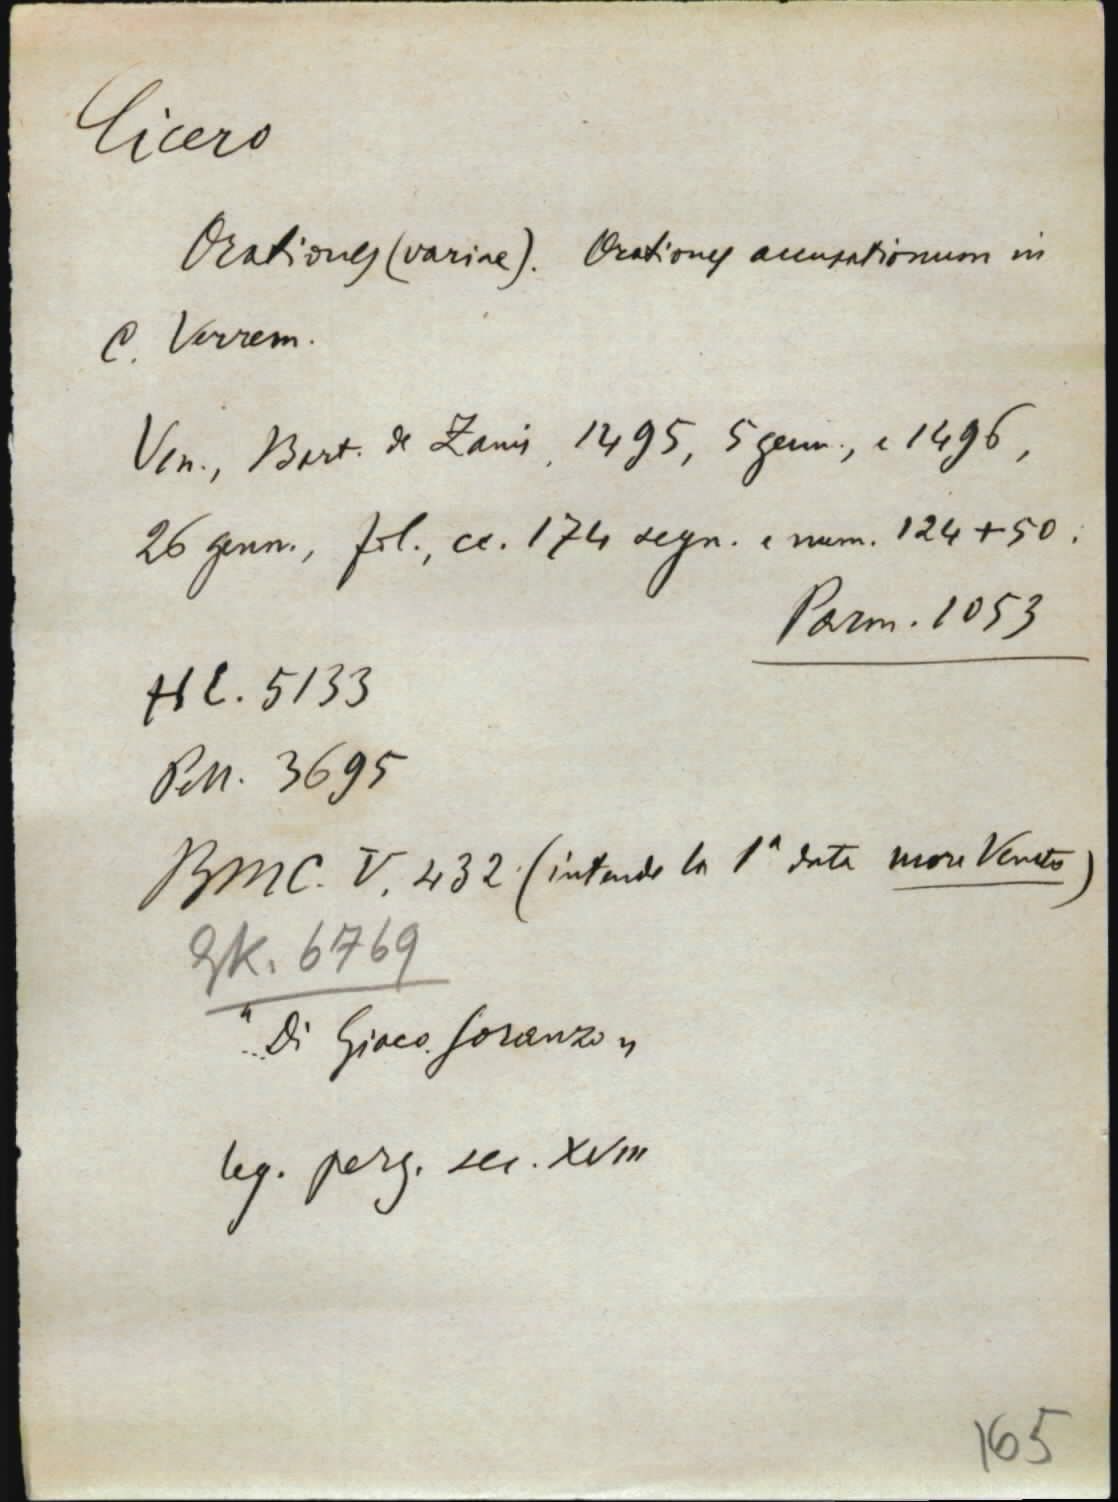 Cicero
Orationes (variae). Orationes accusationum in
C. Verrem.
Ven., Bart. de Zanis, 1495, 5 genn., e 1496,
26 genn., fol., cc. 174 segn. e num. 124 + 50.
Parm. 1053
HC. 5133
Pell. 3695
BMC. V. 432 (intende la 1ª data more Veneto)
Gk. 6769
"Di Giaco. Soranzo"
leg. perg. sec. XVIII
165